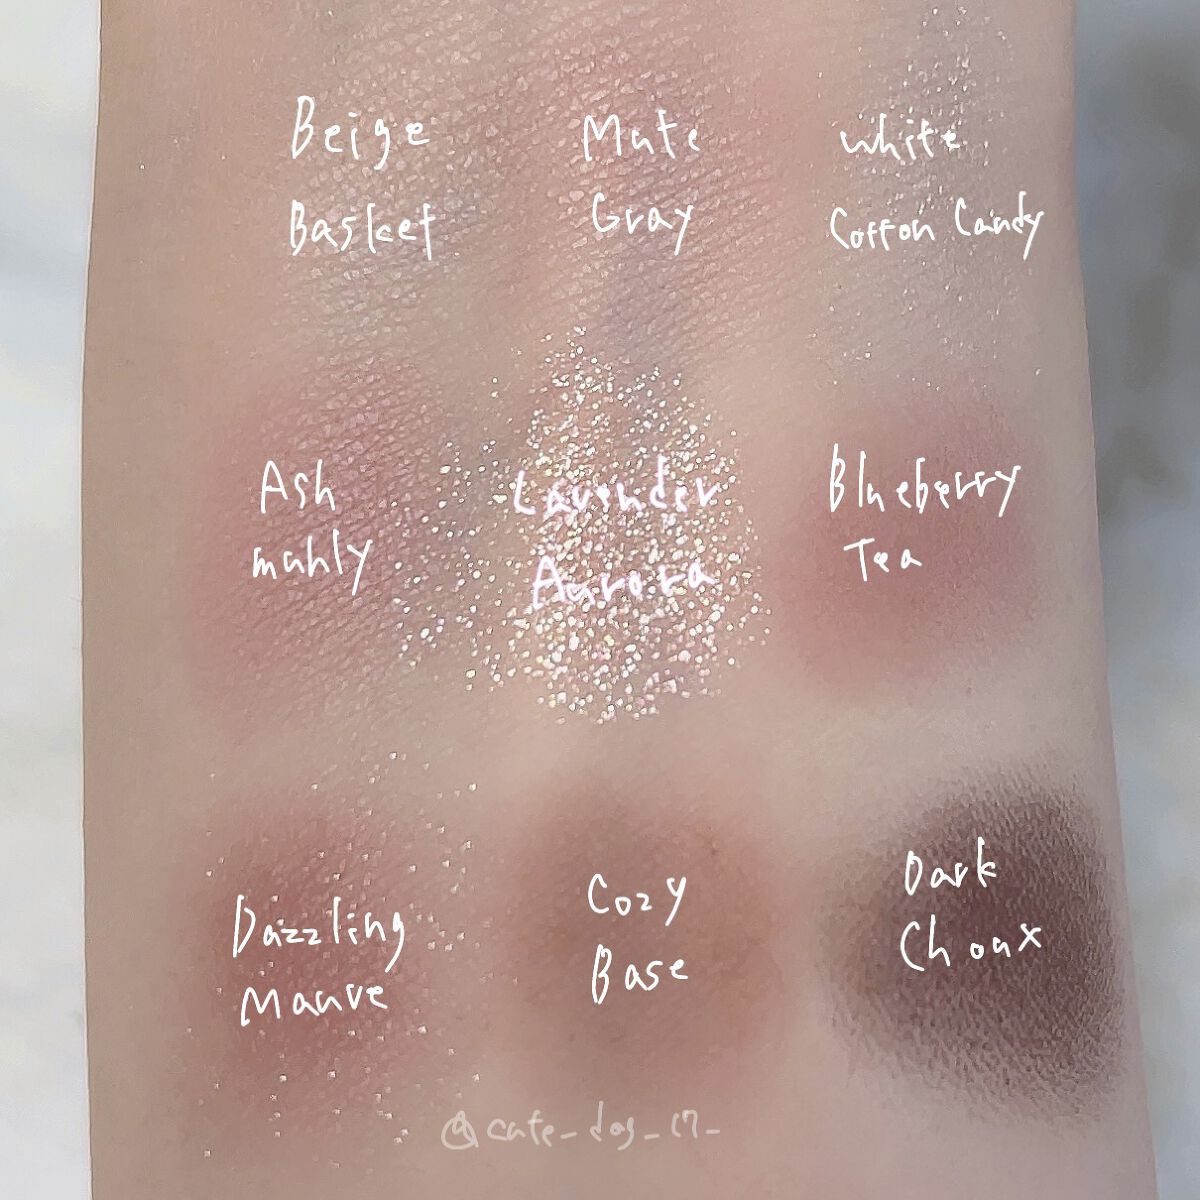 Beige
Basket
Mute
Gray
White
Cotton Candy
Ash
muhly
Lavender
Aurora
Blueberry
Tea
Dazzling
Mauve
Cozy
Base
Dark
@cute_dog_17_